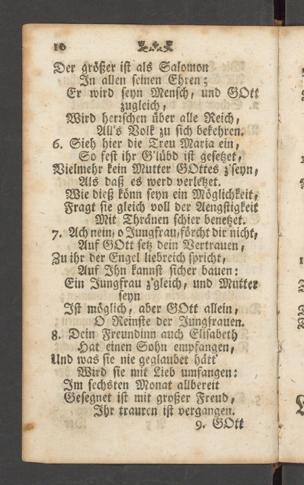 10
Der größer ist als Salomon
In allen seinen Ehren;
Er wird seyn Mensch, und GOtt
zugleich,
Wird herrschen über alle Reich,
All's Volk zu sich bekehren.
6. Sieh hier die Treu Maria ein,
So fest ihr G'lübd ist gesetzet,
Vielmehr kein Mutter GOttes z'seyn,
Als daß es werd verletzet.
Wie dieß könn seyn ein Möglichkeit,
Fragt sie gleich voll der Aengstigkeit
Mit Thränen schier benetzet.
7. Ach nein, o Jungfrau, förcht dir nicht,
Auf GOtt setz dein Vertrauen,
Zu ihr der Engel liebreich spricht,
Auf Ihn kannst sicher bauen:
Ein Jungfrau z'gleich, und Mutter
seyn
Ist möglich, aber GOtt allein,
O Reinste der Jungfrauen.
8. Dein Freundinn auch Elisabeth
Hat einen Sohn empfangen,
Und was sie nie geglaubet hätt
Wird sie mit Lieb umfangen:
Im sechsten Monat allbereit
Gesegnet ist mit großer Freud,
Ihr trauren ist vergangen.
9. GOtt